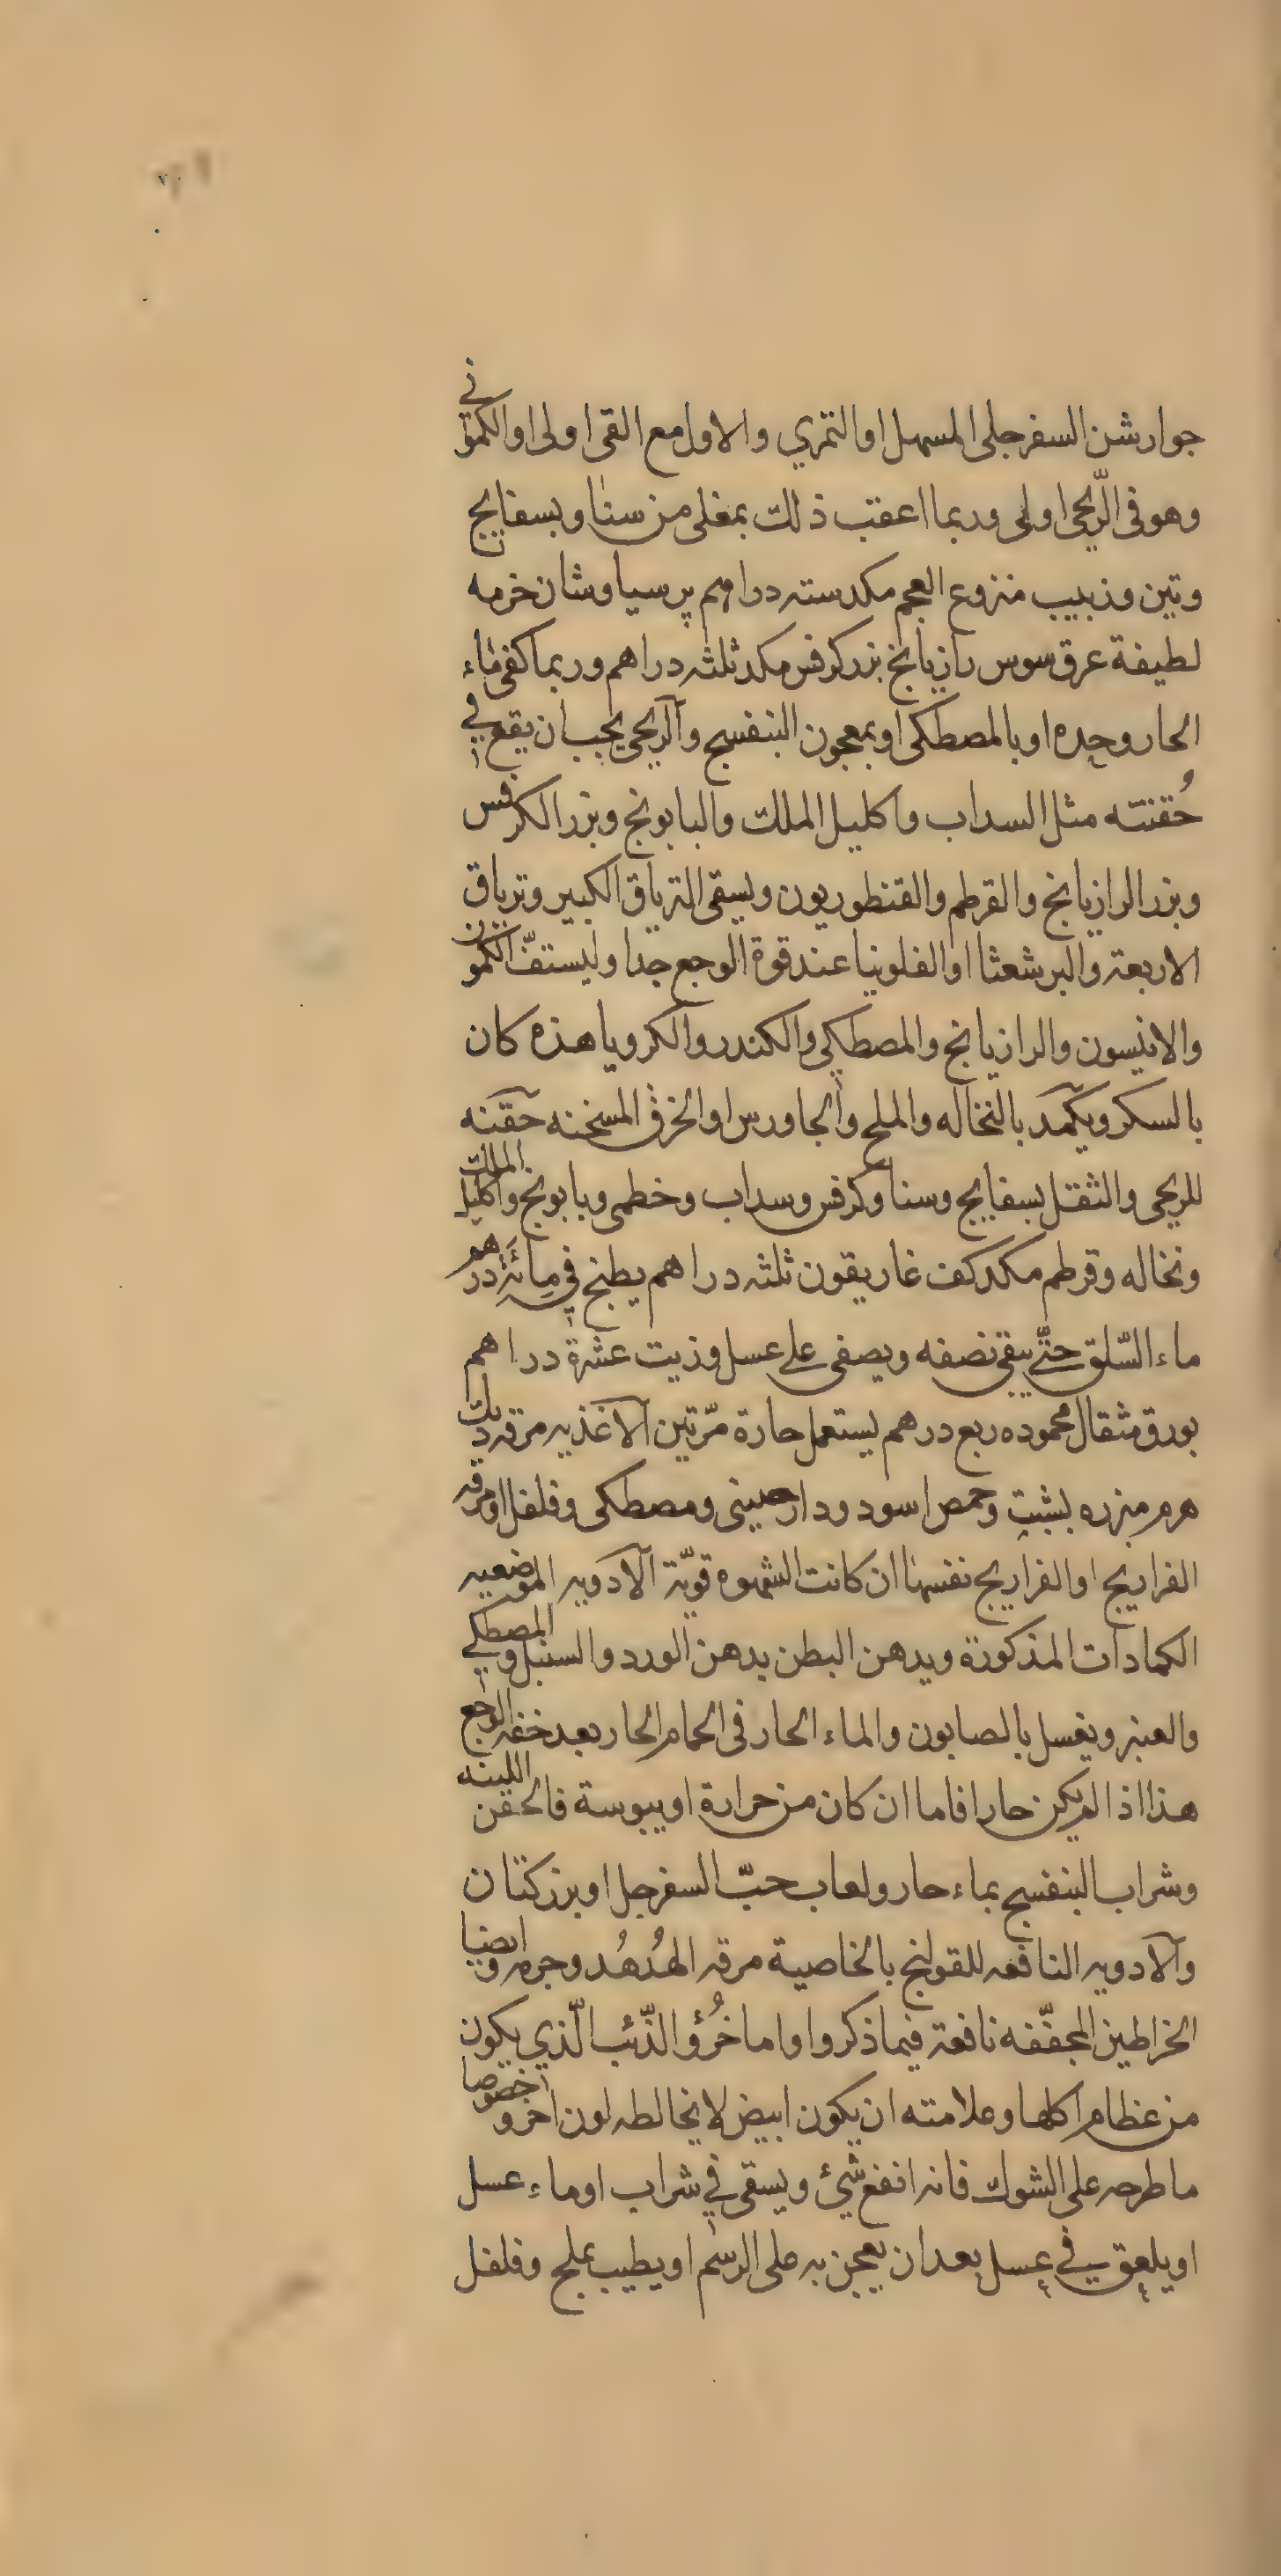 جوارشن السفرجلي المسهل او التمري والاول مع القى اولى او الكمونى
وهو فى الرّيحى اولى وربما اعقب ذلك بمغلى من سنا وبسفايج
وتين وزبيب منزوع العجم مكد ستة دراهم پرسياوشان خرمه
لطيفة عرق سوس رازيانج بزر كرفس مكد ثلثه دراهم وربما كفى ماء
الحار وحده او بالمصطكى او بمعجون البنفسج والريحى يجب ان يقع في
حُقنته مثل السداب واكليل الملك والبابونج وبزر الكرفس
وبزر الرازيانج والقرطم والقنطوريون ويسقى الترياق الكبير وترياق
الاربعة والبرشعثا او الفلونيا عند قوة الوجع جدا وليستفّ الكمون
والانيسون والرازيانج والمصطكي والكندر والكرويا هذه كان
بالسكر ويكمد بالنخاله والملح والجاورس او الخرق المسخنه حقنه
للريحى والثقل بسفايج وسنا وكرفس وسداب وخطمى وبابونج واكليل الملك
ونخاله وقرطم مكد كف غاريقون ثلثه دراهم يطبخ في مائة درهم
ماء السّلق حتّي يبقى نصفه ويصفى على عسل وزيت عشرة دراهم
بورق مثقال محموده ربع درهم يستعمل حارة مرّتين الاغذيه مرقه ديك
هرم مبزره بشبت وحمص اسود ودارصينى ومصطكى وفلفل او مرقه
الفراريج او الفراريج نفسها ان كانت الشهوه قويّة الادويه الموضعيه
الكمادات المذكورة ويدهن البطن بدهن الورد والسنبل والمصطكي
والعنبر ويغسل بالصابون والماء الحار فى الحمام الحار بعد خفه الوجع
هذا اذا لم يكن حارا فاما ان كان من حرارة او يبوسة فالحقن اللينه
وشراب البنفسج بماء حار ولعاب حبّ السفرجل او بزر كتان
والادويه النافعه للقولنج بالخاصية مرقه الهُدهُد وجرمه وايضا
الخراطين المجفّفه نافعة فيما ذكروا واما خُرؤ الذّئب الّذي يكون
من عظام اكلها وعلامته ان يكون ابيض لا يخالطه لون اخر وخصوصا
ما طرحه على الشوك فانه انفع شيئ ويسقى في شراب او ماء عسل
او يلعق في عسل بعد ان يعجن به على الرسم او يطيب بملح وفلفل